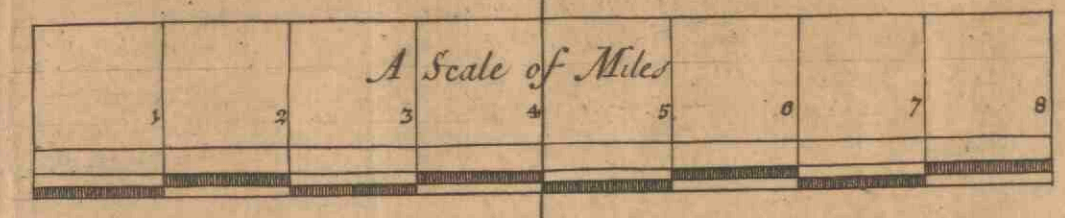 A Scale of Miles
1 2 3 4 5 6 7 8